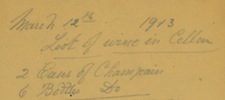 March 12th 1913
List of wine in Cellar
2 Cans of Champain
6 Bottles Do